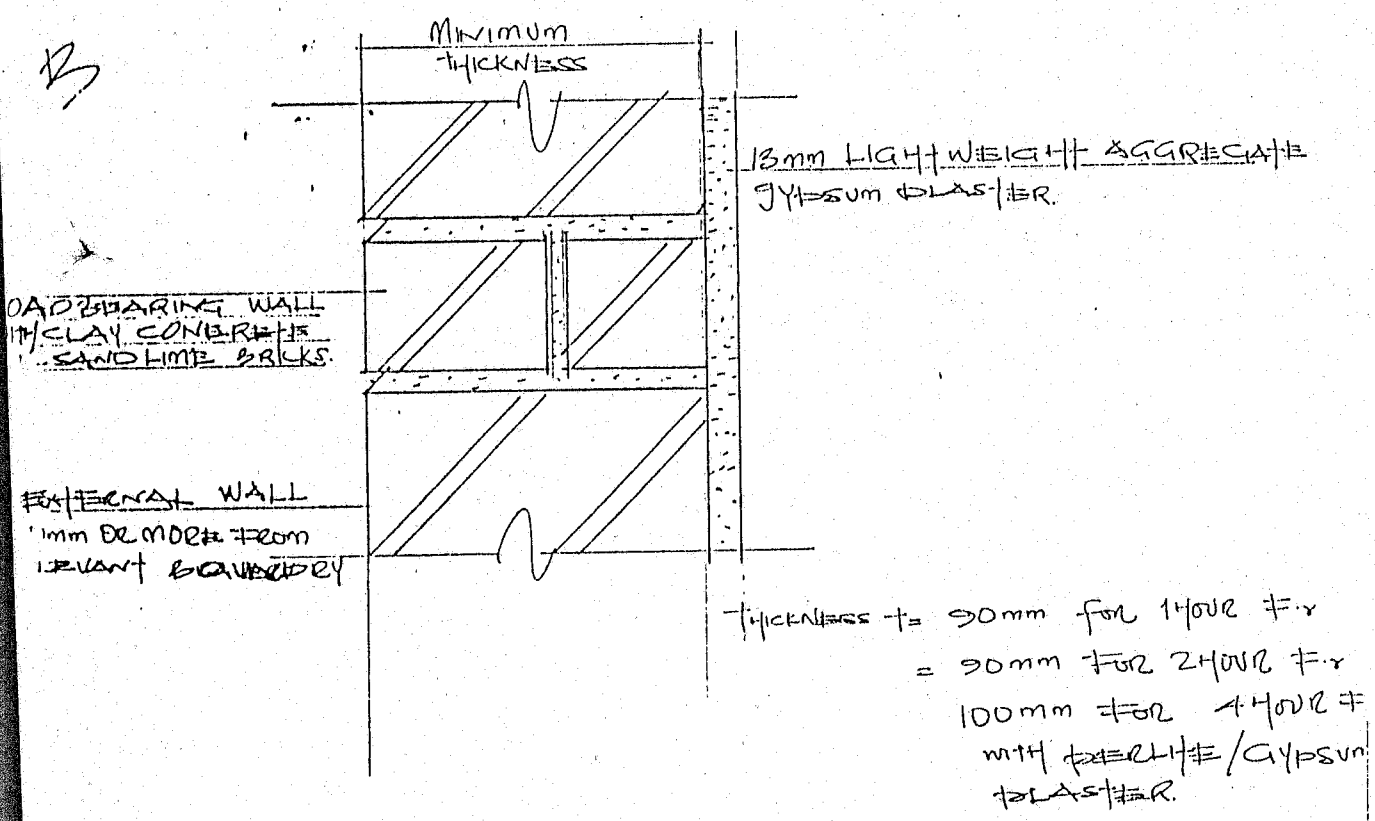 B
MINIMUM
THICKNESS
13mm LIGHTWEIGHT AGGREGATE
GYPSUM PLASTER.
OADBEARING WALL
ITH CLAY CONCRETE
SANDLIME BRICKS.
EXTERNAL WALL
1mm OR MORE FROM
LEVANT BOUNDARY
THICKNESS t = 90mm for 1HOUR F.r
= 90mm FOR 2HOUR F.r
100mm FOR 4HOUR F
WITH PERLITE/GYPSUM
PLASTER.